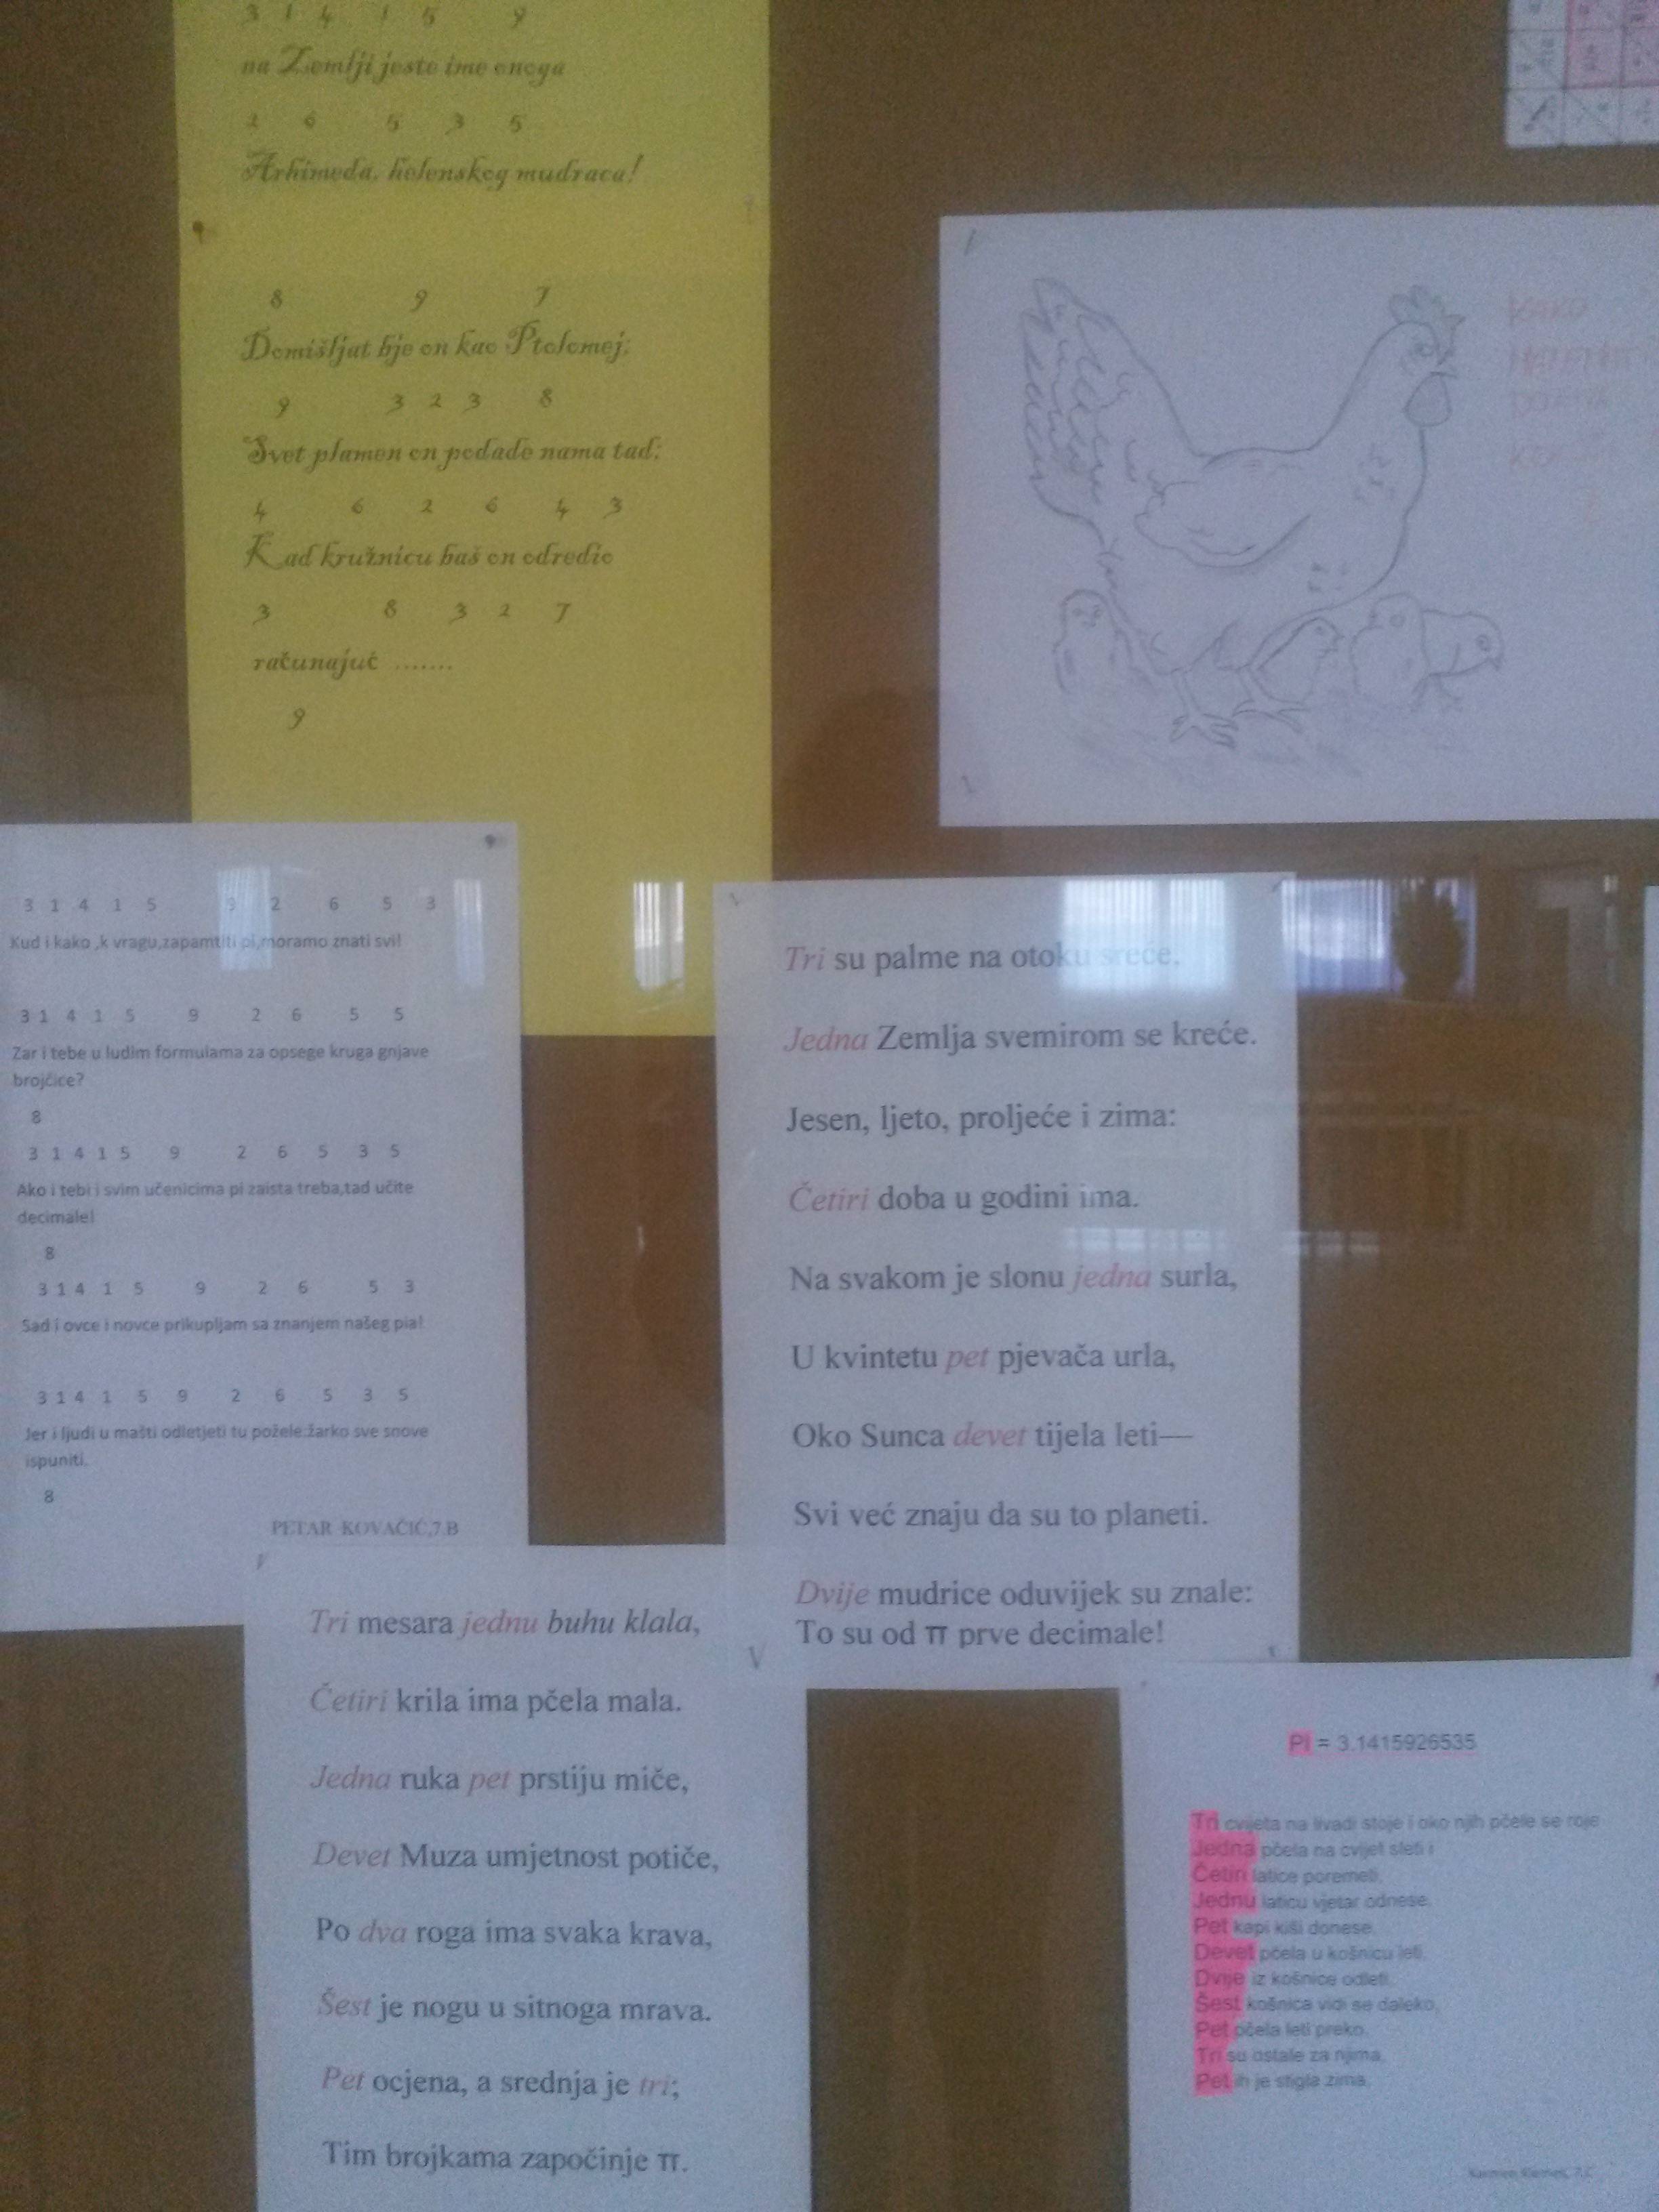 3 1 4 1 5 9
na Zemlji jeste ime onoga
2 6 5 3 5
Arhimeda, helenskog mudraca!
8 9 7
Domišljat bje on kao Ptolomej;
9 3 2 3 8
Svet plamen on podade nama tad;
4 6 2 6 4 3
Kad kružnicu baš on odredio
3 8 3 2 7
računajuć .......
9
KAKO
3 1 4 1 5 9 2 6 5 3
Kud i kako ,k vragu,zapamtiti pi,moramo znati svi!
3 1 4 1 5 9 2 6 5 5
Zar i tebe u ludim formulama za opsege kruga gnjave
brojčice?
8
3 1 4 1 5 9 2 6 5 3 5
Ako i tebi i svim učenicima pi zaista treba,tad učite
decimale!
8
3 1 4 1 5 9 2 6 5 3
Sad i ovce i novce prikupljam sa znanjem našeg pia!
3 1 4 1 5 9 2 6 5 3 5
Jer i ljudi u mašti odletjeti tu požele:žarko sve snove
ispuniti.
8
PETAR KOVAČIĆ,7.B
Tri su palme na otoku sreće.
Jedna Zemlja svemirom se kreće.
Jesen, ljeto, proljeće i zima:
Četiri doba u godini ima.
Na svakom je slonu jedna surla,
U kvintetu pet pjevača urla,
Oko Sunca devet tijela leti—
Svi već znaju da su to planeti.
Dvije mudrice oduvijek su znale:
To su od π prve decimale!
Tri mesara jednu buhu klala,
Četiri krila ima pčela mala.
Jedna ruka pet prstiju miče,
Devet Muza umjetnost potiče,
Po dva roga ima svaka krava,
Šest je nogu u sitnoga mrava.
Pet ocjena, a srednja je tri;
Tim brojkama započinje π.
PI = 3.1415926535
Tri cvijeta na livadi stoje i oko njih pčele se roje
Jedna pčela na cvijet sleti i
Četiri latice poremeti.
Jednu laticu vjetar odnese.
Pet kapi kiši donese.
Devet pčela u košnicu leti.
Dvije iz košnice odleti.
Šest košnica vidi se daleko,
Pet pčela leti preko.
Tri su ostale za njima.
Pet ih je stigla zima.